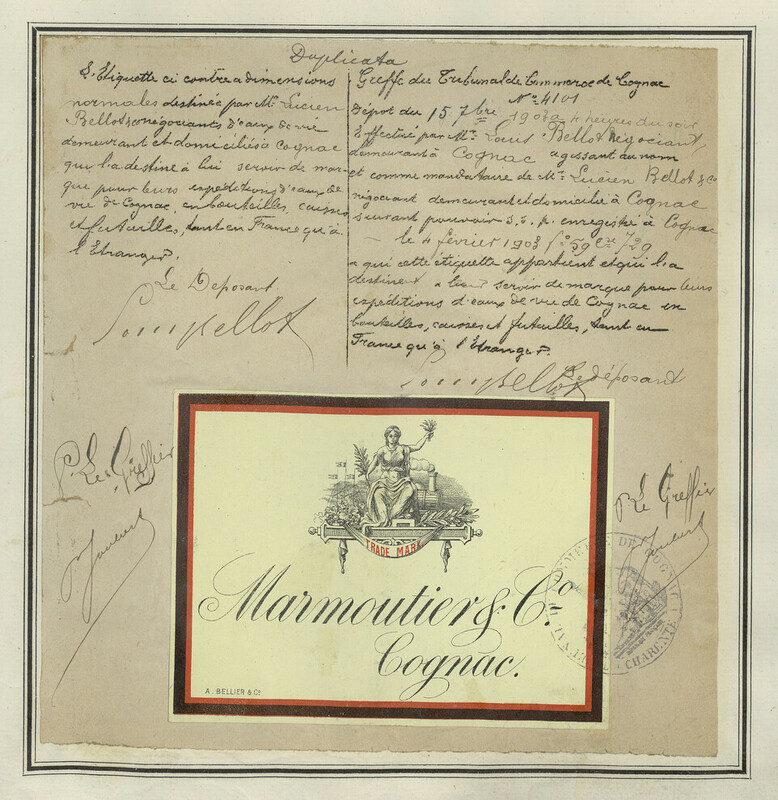 Duplicata
L'Etiquette ci contre a dimensions
normales destinée par Mr Lucien
Bellot & Co négociants d'eaux de vie
demeurant et domiciliés à Cognac
qui l'a destiné à lui servir de mar-
que pour leurs expéditions d'eaux de
vie de Cognac, en bouteilles, caisses
et futailles, tant en France qu'à
l'Etranger.
Le Déposant
Louis Bellot
Greffe du Tribunal de Commerce de Cognac
No 4101
Dépot du 15 7bre 1903 a 4 heures du soir
Effectué par Mr Louis Bellot Négociant,
demeurant à Cognac agissant au nom
et comme mandataire de Mr Lucien Bellot & Co
négociant demeurant et domicilié à Cognac
suivant pouvoir s.s.p. enregistré à Cognac
le 4 février 1903 fo 59 Ce 729
a qui cette étiquette appartient et qui l'a
destinent a leur servir de marque pour leurs
expéditions d'eaux de vie de Cognac en
bouteilles, caisses et futailles, tant en
France qu'à l'Etranger.
Le déposant
Louis Bellot
P. Le Greffier
P. Le Greffier
TRADE MARK
Marmoutier & Co
Cognac.
A. BELLIER & Co
COMMERCE DE COGNAC
CHARENTE